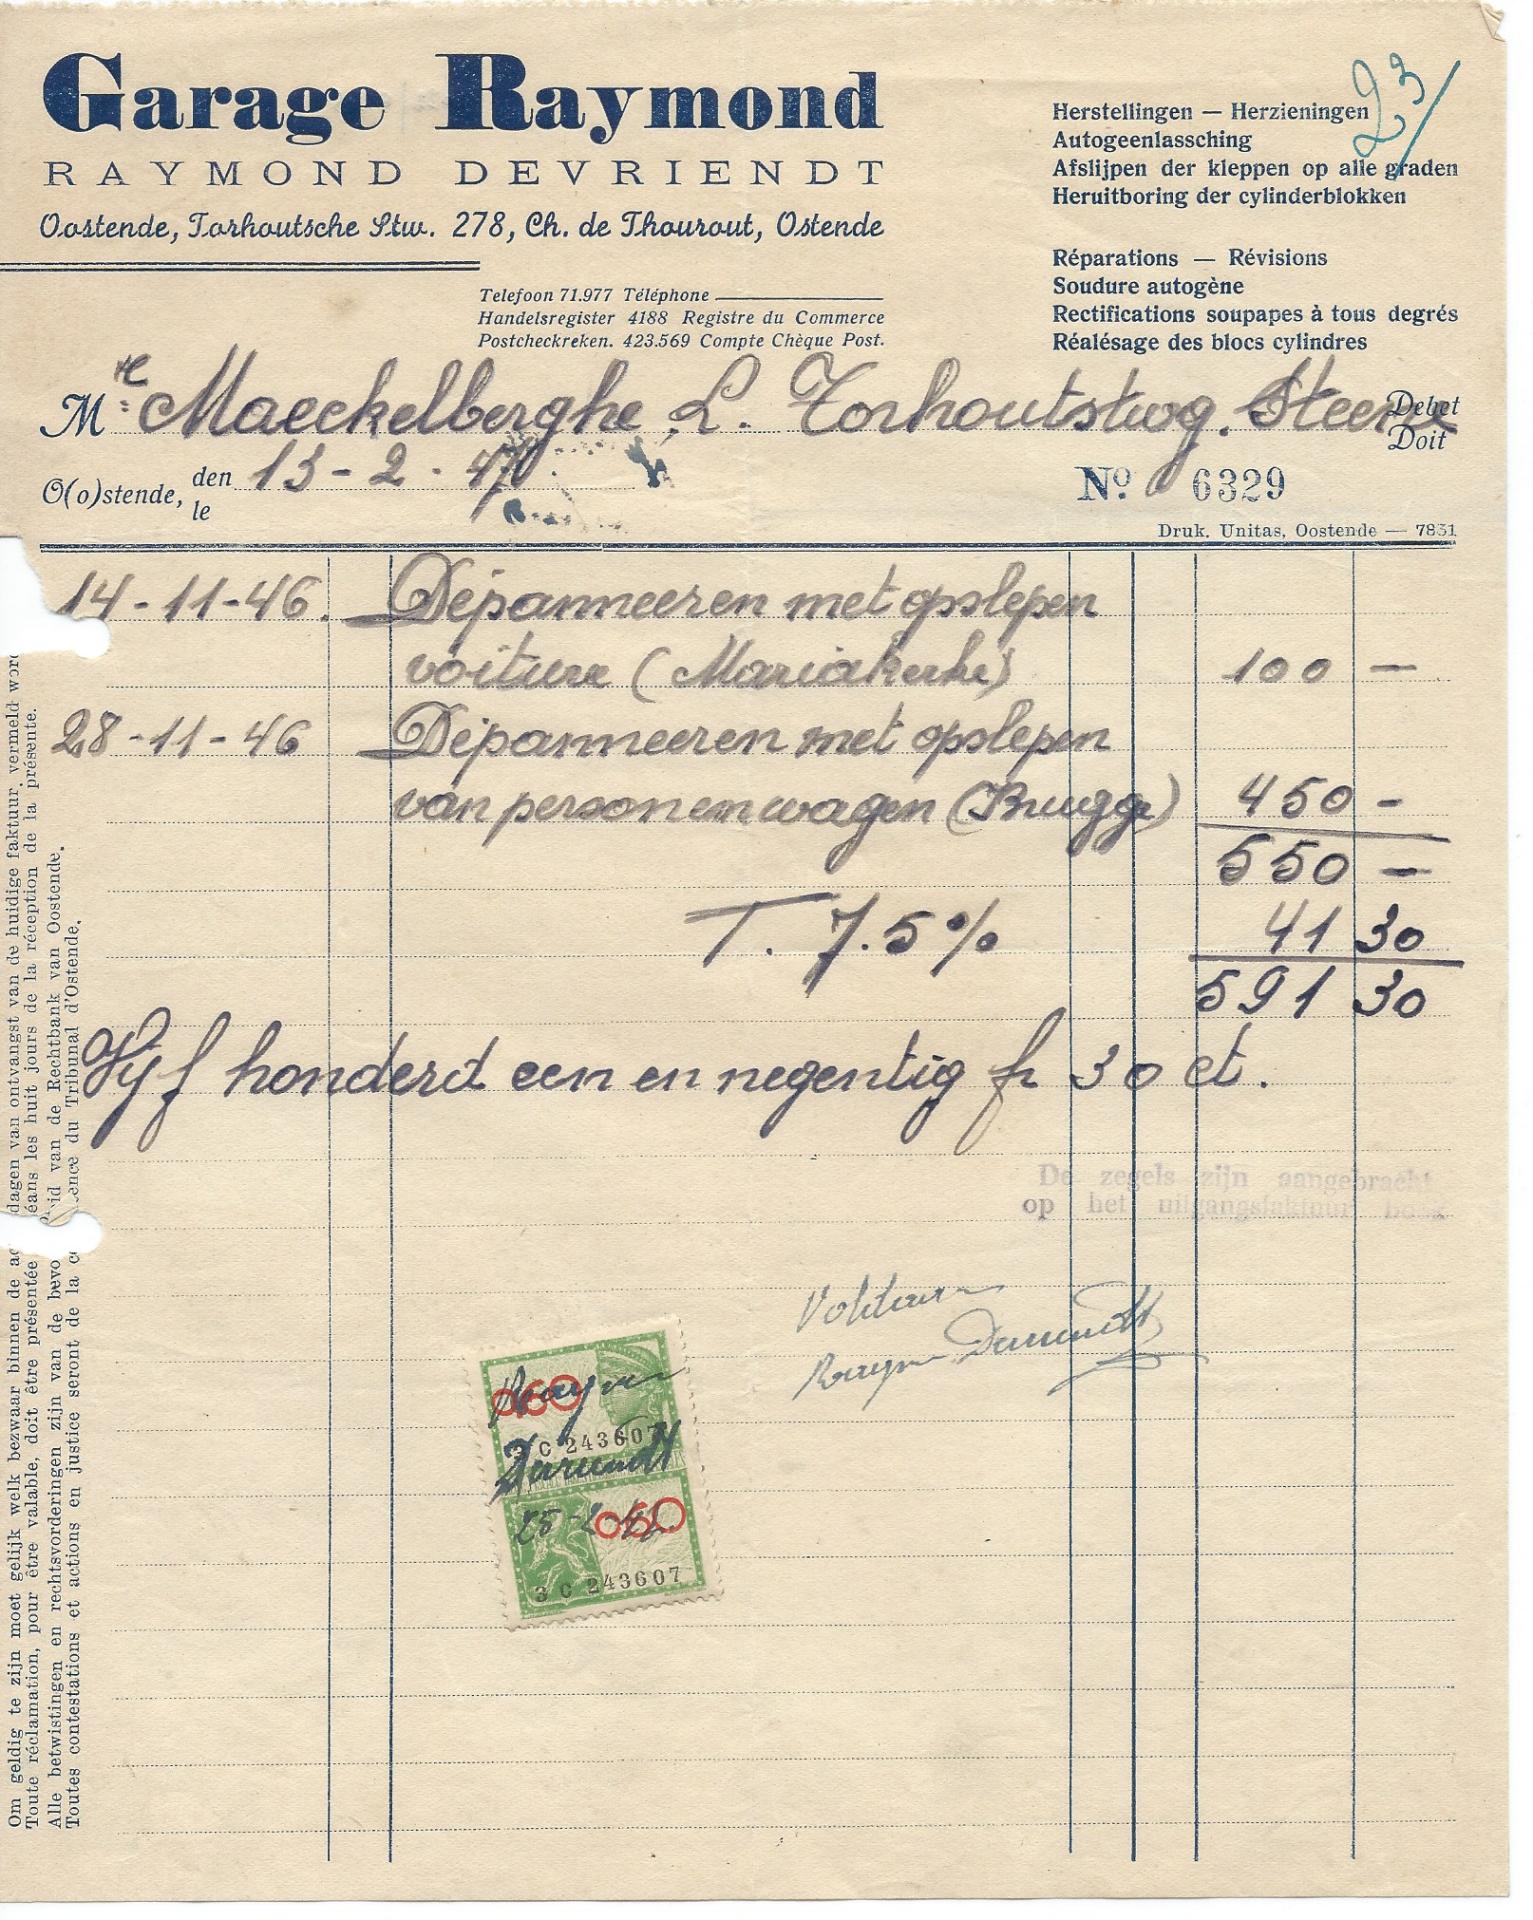 Garage Raymond
RAYMOND DEVRIENDT
Oostende, Torhoutsche Stw. 278, Ch. de Thourout, Ostende
Telefoon 71.977 Téléphone
Handelsregister 4188 Registre du Commerce
Postcheckreken. 423.569 Compte Chèque Post.
23/
Herstellingen — Herzieningen
Autogeenlassching
Afslijpen der kleppen op alle graden
Heruitboring der cylinderblokken
Réparations — Révisions
Soudure autogène
Rectifications soupapes à tous degrés
Réalésage des blocs cylindres
Mr Maeckelberghe L. Torhoutstwg. Steene Debet
Doit
O(o)stende, den 13-2-47
le
No 6329
Druk. Unitas, Oostende — 7831
14-11-46. Dépanneeren met opslepen
voiture (Mariakerke) 100 —
28-11-46 Dépanneeren met opslepen
van personenwagen (Brugge) 450 -
550 —
T. 7.5% 41 30
591 30
Vijf honderd een en negentig fr 30 ct.
De zegels zijn aangebracht
op het uitgangsfaktuur boek
Voldaan
Raymon Devriendt
0.60
Raymon
3 C 243607
Devriendt
25-2-47 0.60
3 C 243607
Om geldig te zijn moet gelijk welk bezwaar binnen de ac dagen van ontvangst van de huidige faktuur, vermeld word
Toute réclamation, pour être valable, doit être présentée éans les huit jours de la réception de la présente.
Alle betwistingen en rechtsvorderingen zijn van de bevo id van de Rechtbank van Oostende.
Toutes contestations et actions en justice seront de la co tence du Tribunal d'Ostende.